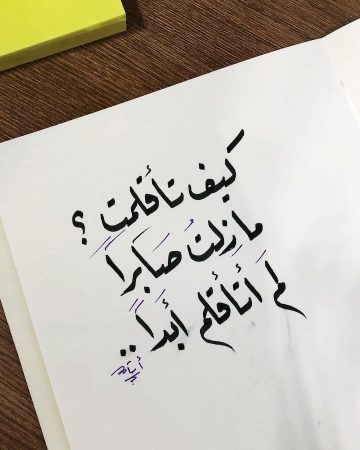 كيف تأقلمت ؟
ما زلتُ صَابراً
لم أتأقلم أبداً..